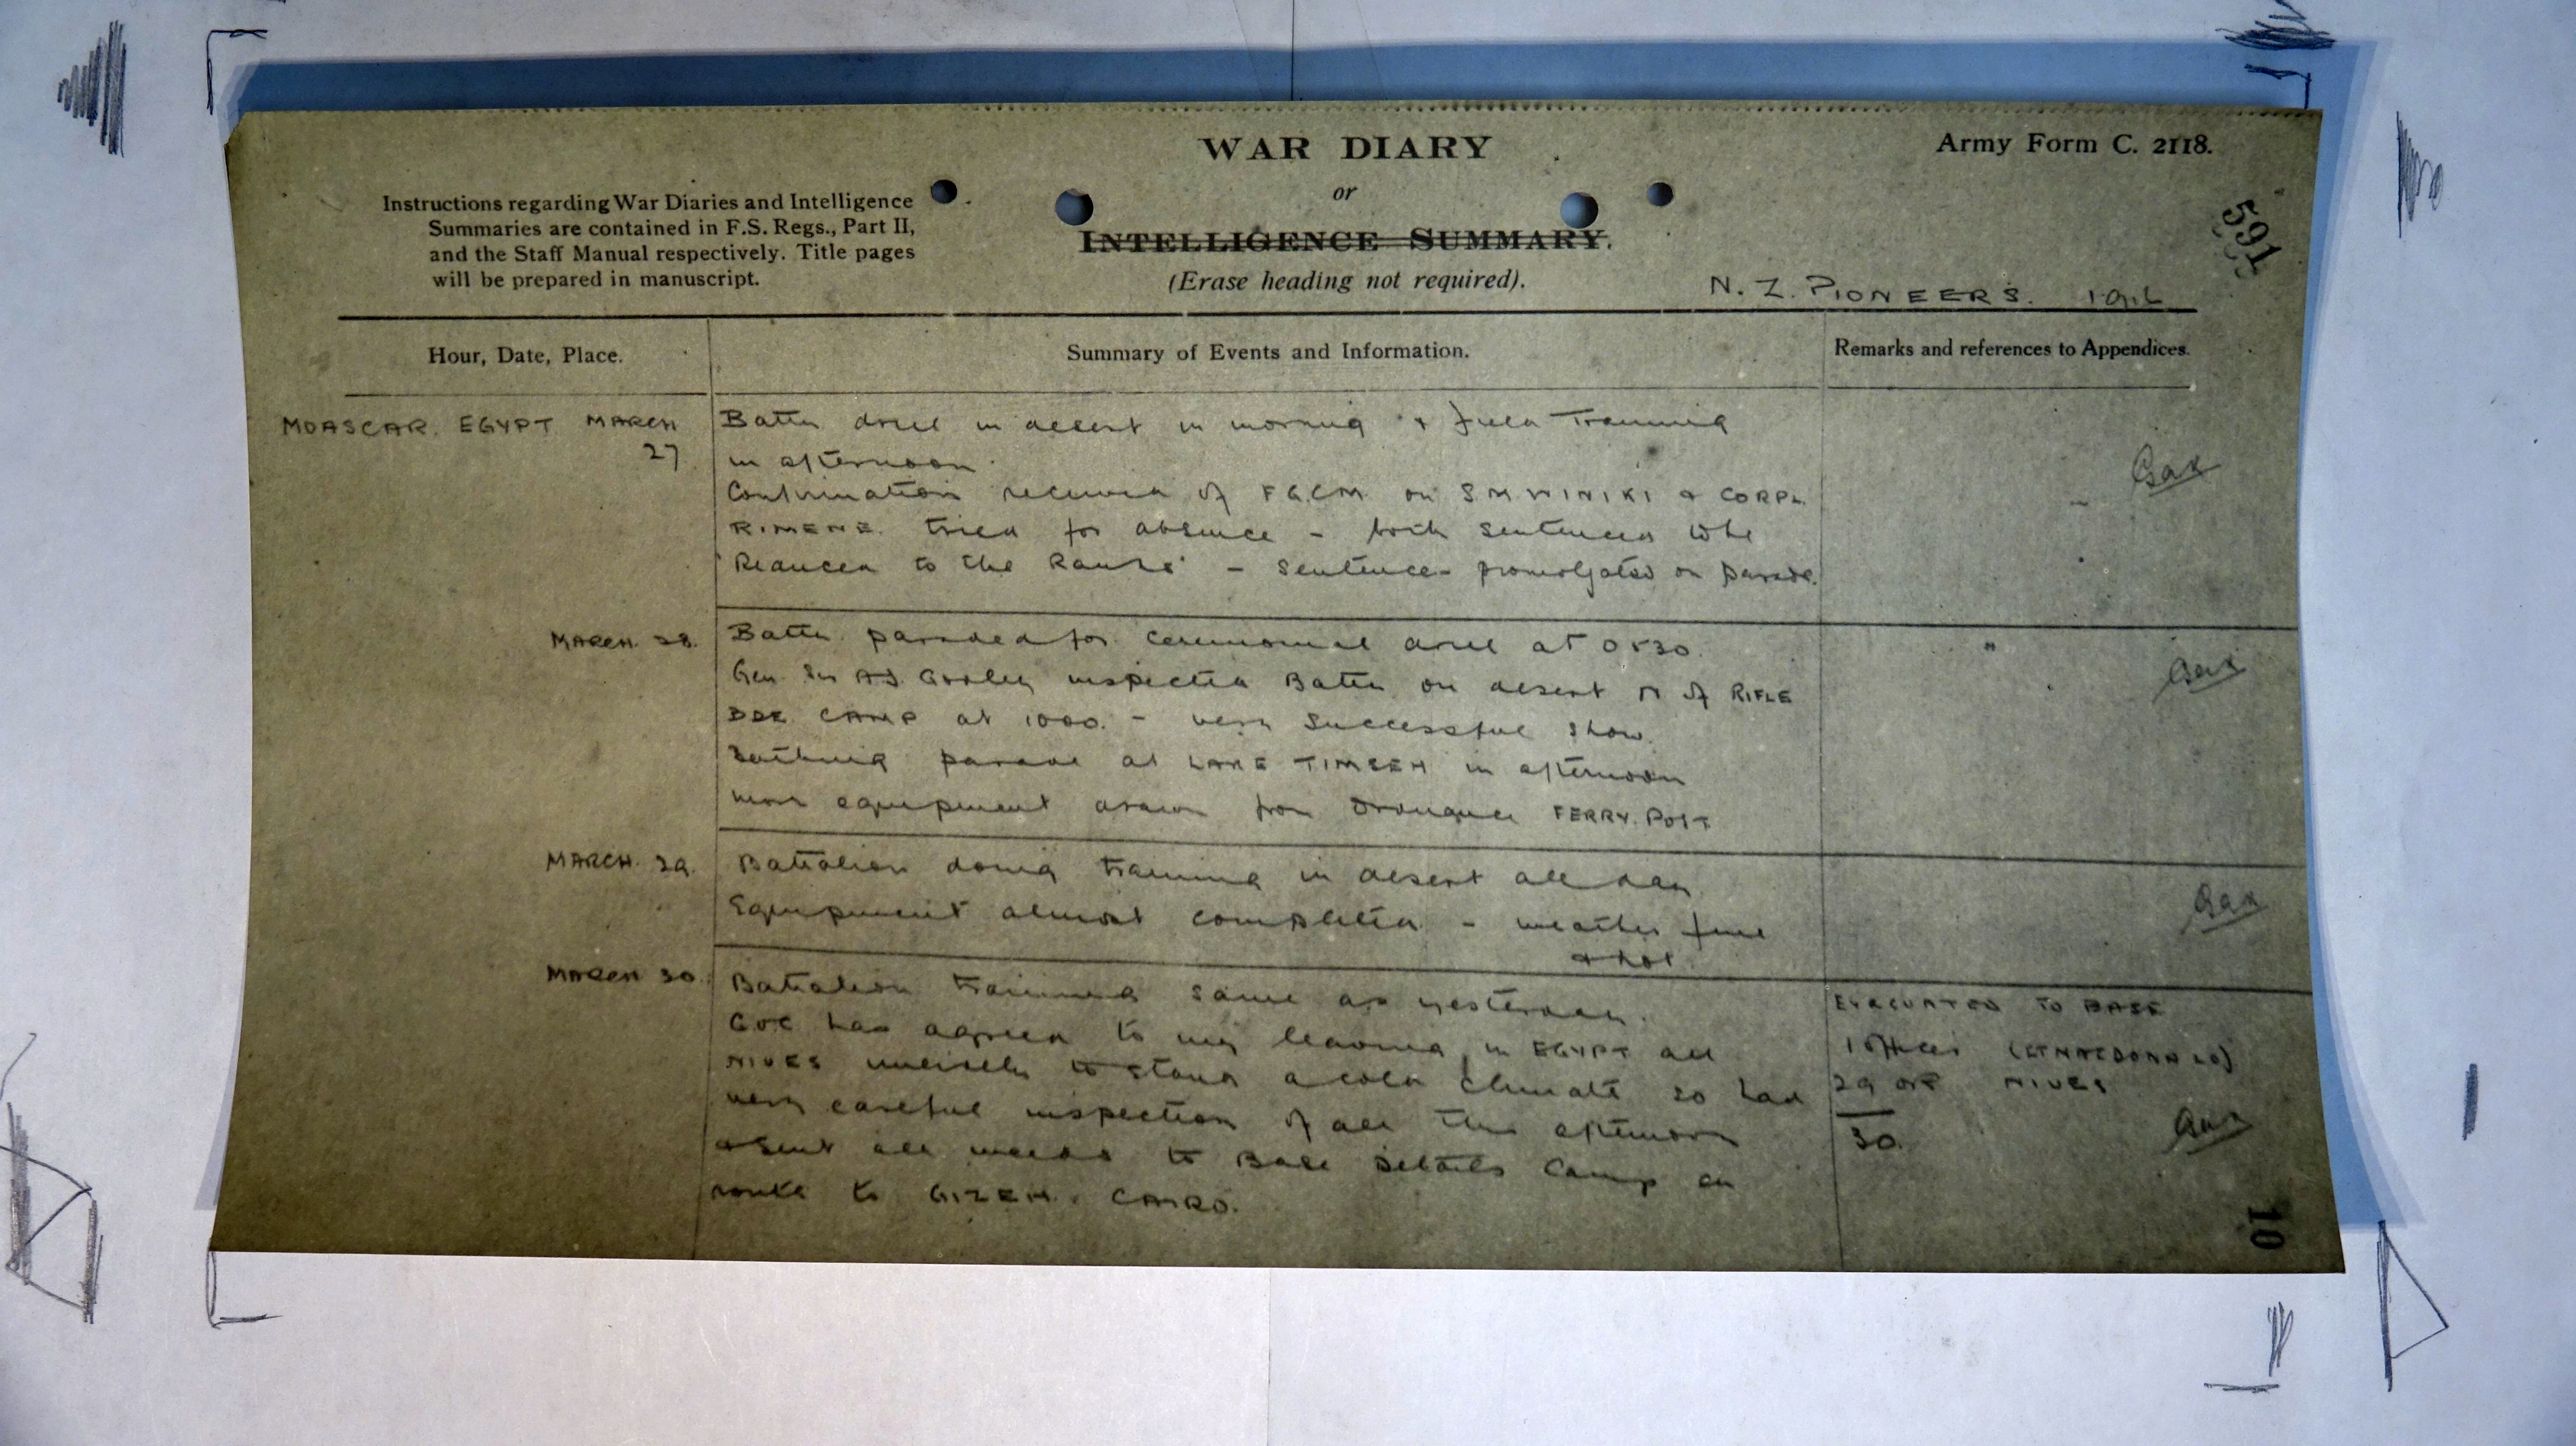 WAR DIARY
or
INTELLIGENCE SUMMARY.
(Erase heading not required).
Army Form C. 2118.
Instructions regarding War Diaries and Intelligence
Summaries are contained in F.S. Regs., Part II,
and the Staff Manual respectively. Title pages
will be prepared in manuscript.
591
N. Z. PIONEERS. 1916
Hour, Date, Place.
Summary of Events and Information.
Remarks and references to Appendices.
MOASCAR. EGYPT MARCH
27
Battn drill in desert in morning & field Training
in afternoon.
Confirmation received of F.G.C.M. on SM WINIKI & CORPL
RIMENE. tried for absence - both sentences
'Reduced to the Ranks' - sentences promolgated on parade.
MARCH. 28.
Battn. paraded for ceremonial drill at 0830.
Gen Sir AJ Godley inspected Battn on desert N of RIFLE
BDE CAMP at 1000. - very successful show.
Bathing parade at LAKE TIMSEH in afternoon
more equipment drawn from Ordnance FERRY. POST
MARCH. 29.
Battalion doing training in desert all day.
Equipment almost completed - weather fine
& hot.
MARCH 30.
Battalion training same as yesterday.
GOC has agreed to my leaving in EGYPT all
NIUES unlikely to stand a cold climate so had
very careful inspection of all this afternoon
& sent all weeds to Base Details Camp en
route to GIZEH. CAIRO.
EVACUATED TO BASE
1 officer (LT MACDONALD)
29 OR NIUES
30.
10